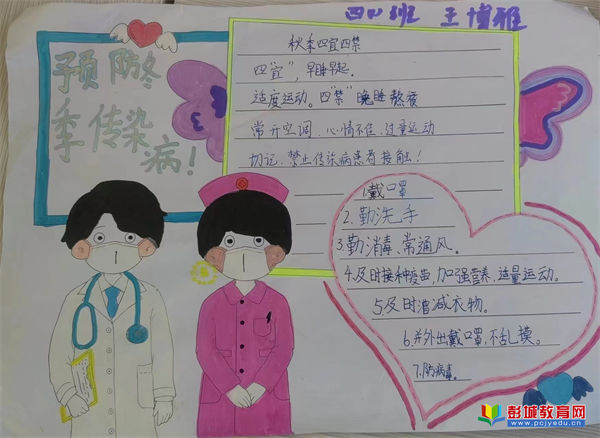 四(1)班 王博雅
预防冬
季传染
病!
秋季四宜四禁
四“宜”,早睡早起.
适度运动。四“禁”晚睡熬夜
常开空调、心情不佳、过量运动
切记、禁止传染病患者接触!
1.戴口罩
2.勤洗手
3.勤消毒、常通风。
4.及时接种疫苗,加强营养,适量运动。
5.及时增减衣物。
6.并外出戴口罩,不乱摸。
7.防病毒。
彭城教育网
www.pcjyedu.cn